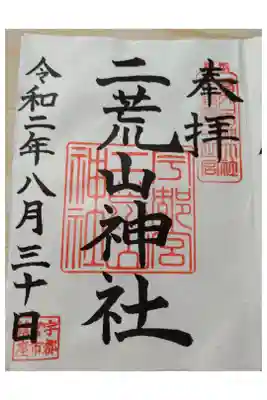 奉拝
二荒山神社
令和二年八月三十日